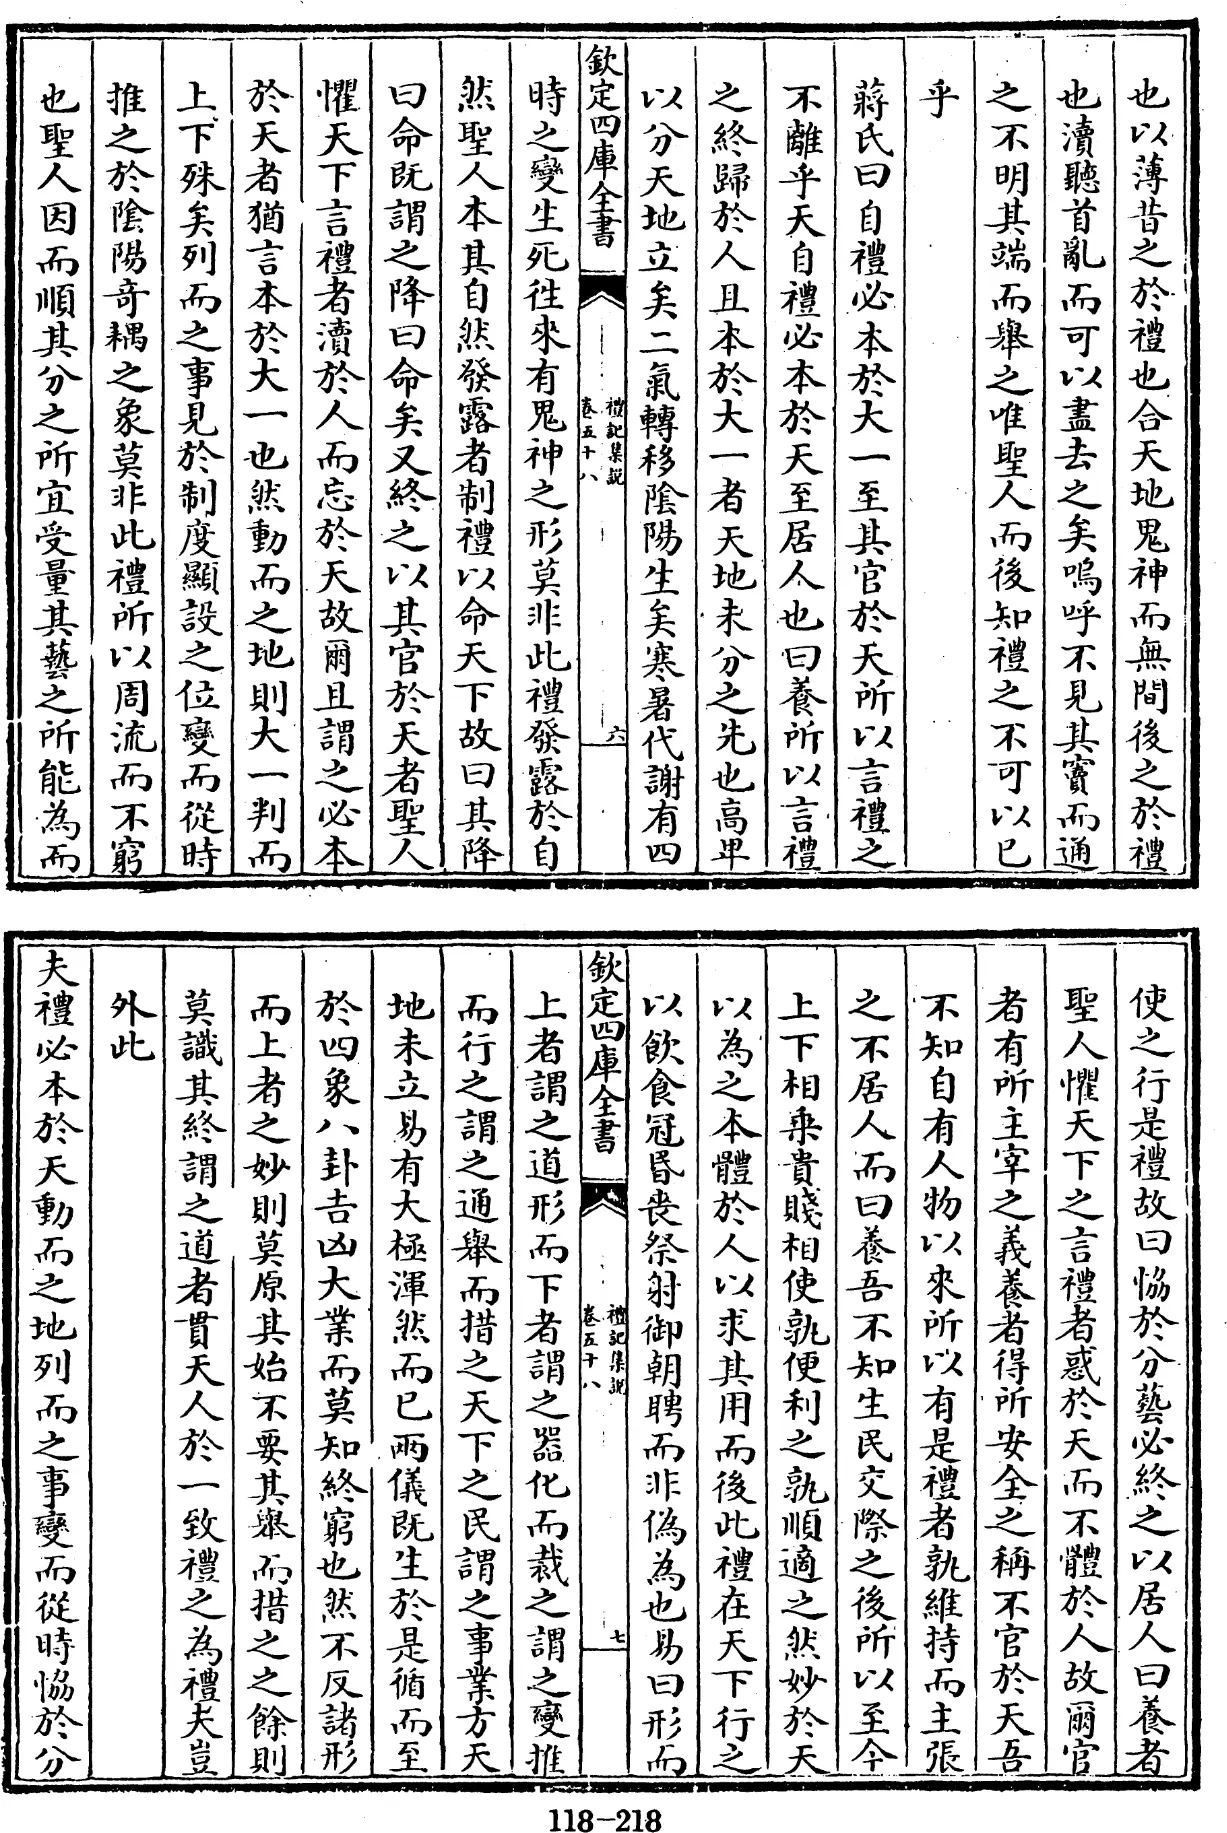 也以薄昔之於禮也合天地鬼神而無間後之於禮
也瀆聽首亂而可以盡去之矣嗚呼不見其竇而通
之不明其端而舉之唯聖人而後知禮之不可以已
乎
蔣氏曰自禮必本於大一至其官於天所以言禮之
不離乎天自禮必本於天至居人也曰養所以言禮
之終歸於人且本於大一者天地未分之先也高卑
以分天地立矣二氣轉移陰陽生矣寒暑代謝有四
欽定四庫全書
禮記集說
卷五十八
六
時之變生死徃來有鬼神之形莫非此禮發露於自
然聖人本其自然發露者制禮以命天下故曰其降
曰命既謂之降曰命矣又終之以其官於天者聖人
懼天下言禮者瀆於人而忘於天故爾且謂之必本
於天者猶言本於大一也然動而之地則大一判而
上下殊矣列而之事見於制度顯設之位變而從時
推之於陰陽奇耦之象莫非此禮所以周流而不窮
也聖人因而順其分之所宜受量其藝之所能為而
使之行是禮故曰恊於分藝必終之以居人曰養者
聖人懼天下之言禮者惑於天而不體於人故爾官
者有所主宰之義養者得所安全之稱不官於天吾
不知自有人物以來所以有是禮者孰維持而主張
之不居人而曰養吾不知生民交際之後所以至今
上下相乗貴賤相使孰便利之孰順適之然妙於天
以為之本體於人以求其用而後此禮在天下行之
以飲食冠昏喪祭射御朝聘而非偽為也易曰形而
欽定四庫全書
禮記集說
卷五十八
七
上者謂之道形而下者謂之器化而裁之謂之變推
而行之謂之通舉而措之天下之民謂之事業方天
地未立易有大極渾然而已兩儀既生於是循而至
於四象八卦吉凶大業而莫知終窮也然不反諸形
而上者之妙則莫原其始不要其舉而措之之餘則
莫識其終謂之道者貫天人於一致禮之為禮夫豈
外此
夫禮必本於天動而之地列而之事變而從時恊於分
118-218